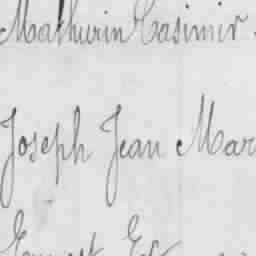 Mathurin Casimir
Joseph Jean Mar
Ernest